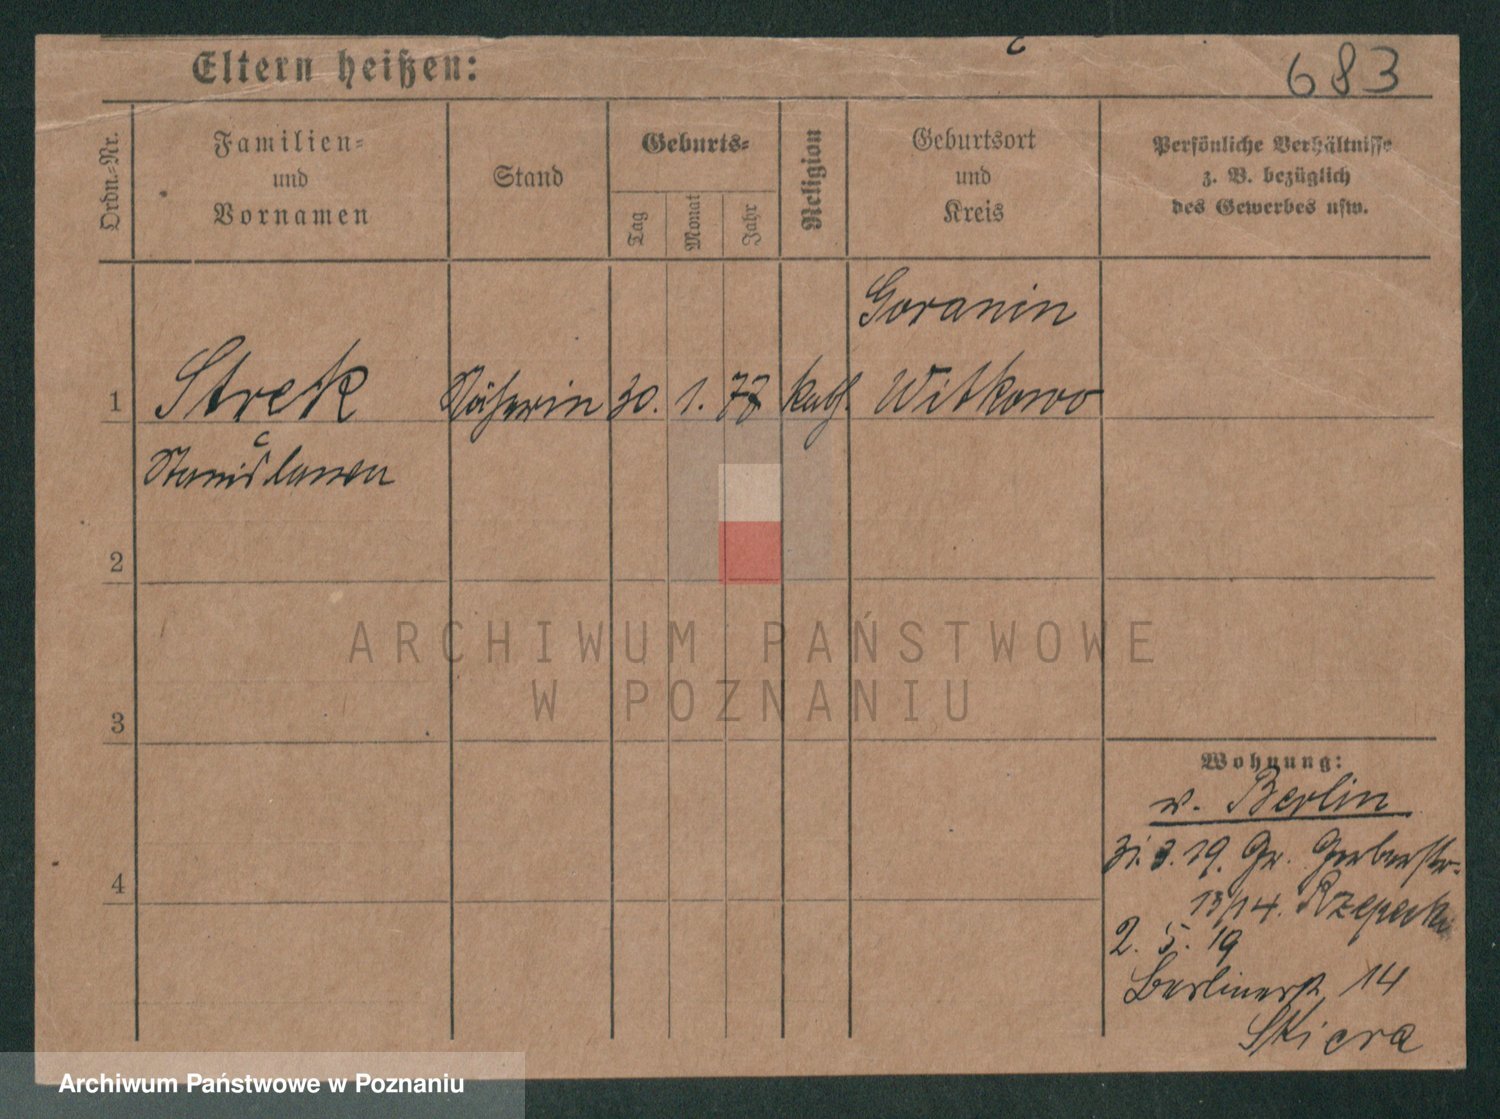 Eltern heißen:
683
Ordn.-Nr.
Familien-
und
Vornamen
Stand
Geburts-
Tag
Monat
Jahr
Religion
Geburtsort
und
Kreis
Persönliche Verhältnisse
z. B. bezüglich
des Gewerbes usw.
Goranin
1 Strek Näherin 30. 1. 77 kath. Witkowo
Stanislawa
2
3
4
ARCHIWUM PAŃSTWOWE
W POZNANIU
Wohnung:
v. Berlin
31. 3. 19. Gr. Gerberstr.
13/14. Rzepecki
2. 5. 19
Berlinerstr. 14
Skiera
Archiwum Państwowe w Poznaniu